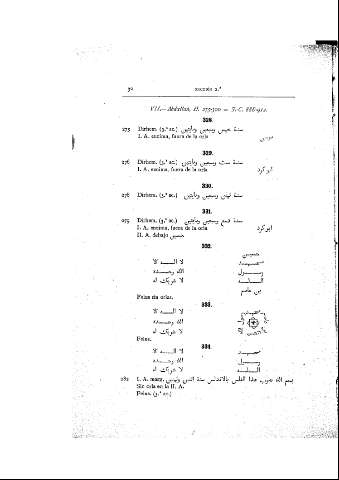 50
SECCIÓN 2.ª
VII.—Abdallah, H. 275-300 = J. C. 888-912.
328.
275 Dirhem. (3.ª ac.) سنة خمس وسبعين ومايتين
I. A. encima, fuera de la orla
329.
276 Dirhem. (3.ª ac.) سنة ست وسبعين ومايتين
I. A. encima, fuera de la orla
330.
278 Dirhem. (3.ª ac.) سنة ثمان وسبعين ومايتين
331.
279 Dirhem. (3.ª ac.) سنة تسع وسبعين ومايتين
I. A. encima, fuera de la orla
II. A. debajo
332.
لا الــه الا
الله وحــده
لا شريك له
محــمد
رســول
اللــه
Felus sin orlas.
333.
لا الــه الا
الله وحــده
لا شريك له
Felus.
334.
لا الــه الا
الله وحــده
لا شريك له
محــمد
رســول
اللــه
I. A. marg. بسم الله ضرب هذا الفلس بالاندلس سنة
Sin orla en la II. A.
Felus. (3.ª ac.)